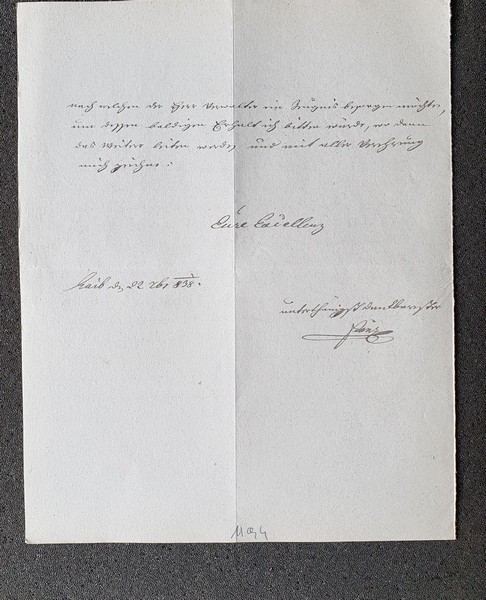 nach welchen der Herr Verwalter ein Zeugnis besorgen möchte,
um dessen baldigen Erhalt ich bitten würde, wo dann
das Weitere leiten werde, und mit aller Verehrung
mich zeichne:
Eure Excellenz
Raab den 22 838.
unterthänigst dankbarster